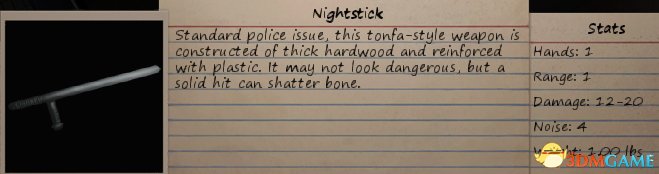 Nightstick
Standard police issue, this tonfa-style weapon is
constructed of thick hardwood and reinforced
with plastic. It may not look dangerous, but a
solid hit can shatter bone.
Stats
Hands: 1
Range: 1
Damage: 12-20
Noise: 4
Weight: 1.00 lbs
3DMGAME